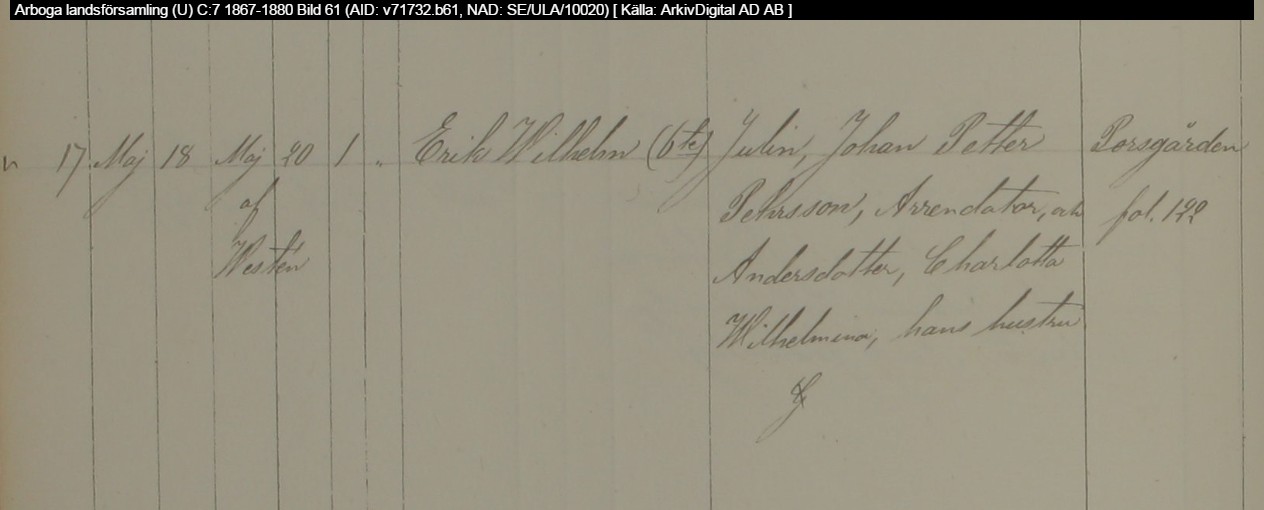 Arboga landsförsamling (U) C:7 1867-1880 Bild 61 (AID: v71732.b61, NAD: SE/ULA/10020) [ Källa: ArkivDigital AD AB ]
17. Maj 18 Maj 20 1 " Erik Wilhelm (6te) Julin, Johan Petter Porsgården
af Pehrsson, Arrendator, och fol. 122
Westén Andersdotter, Charlotta
Wilhelmina, hans hustru